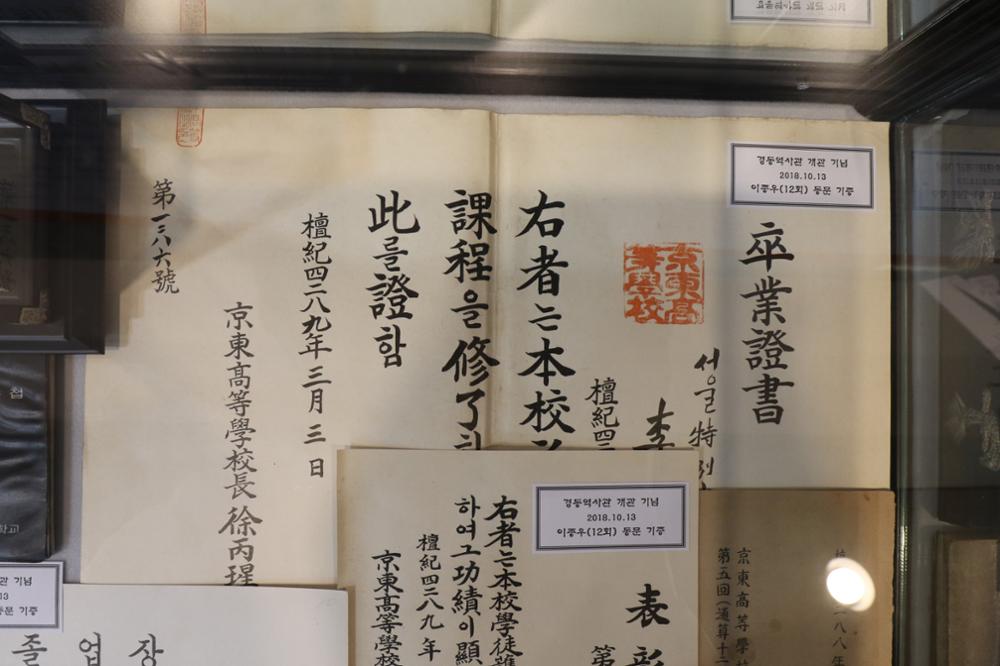 경동역사관 개관 기념
2018.10.13
이종우(12회) 동문 기증
卒業證書
서울特別
李
檀紀四二
京東高
等學校
右者는本校
課程을修了하
此를證함
檀紀四二八九年三月三日
京東高等學校長徐丙瑆
第一三八六號
경동역사관 개관 기념
2018.10.13
이종우(12회) 동문 기증
表彰
第
右者는本校學徒
하여그功績이顯
檀紀四二八九年
京東高等學校
京東高等學
第五回(通算十二
八八年
관 개관 기념
13
동문 기증
졸업장
첩
학교